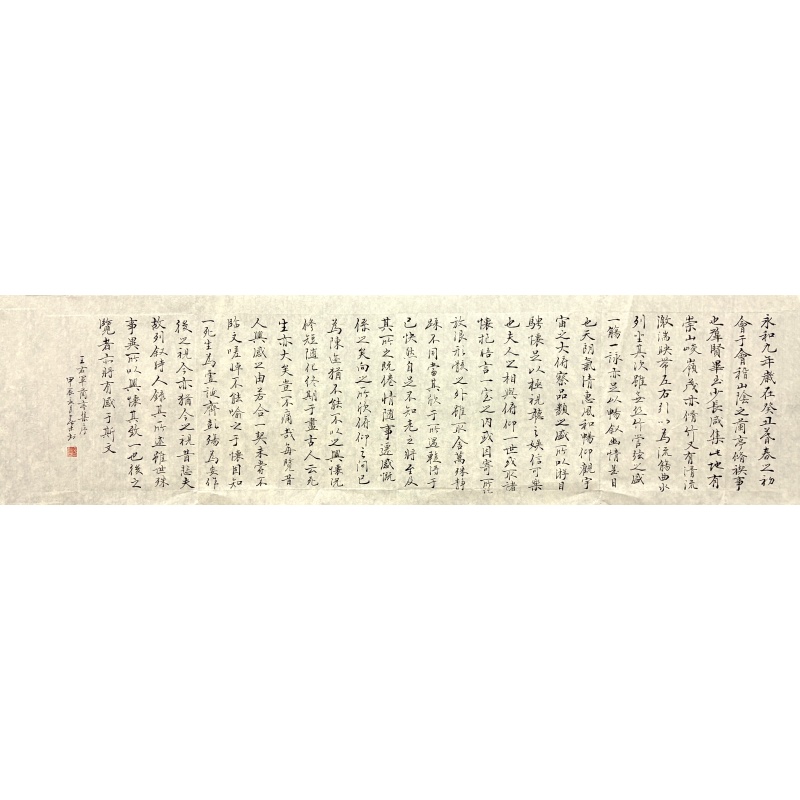 永和九年歲在癸丑暮春之初
會于會稽山陰之蘭亭脩禊事
也羣賢畢至少長咸集此地有
崇山峻嶺茂林脩竹又有清流
激湍映帶左右引以為流觴曲水
列坐其次雖無絲竹管弦之盛
一觴一詠亦足以暢敘幽情是日
也天朗氣清惠風和暢仰觀宇
宙之大俯察品類之盛所以遊目
騁懷足以極視聽之娛信可樂
也夫人之相與俯仰一世或取諸
懷抱悟言一室之內或因寄所託
放浪形骸之外雖取舍萬殊靜
躁不同當其欣于所遇輒得于
己快然自足不知老之將至及
其所之既倦情隨事遷感慨
係之矣向之所欣俯仰之間已
為陳迹猶不能不以之興懷況
脩短隨化終期于盡古人云死
生亦大矣豈不痛哉每覽昔
人興感之由若合一契未嘗不
臨文嗟悼不能喻之于懷固知
一死生為虛誕齊彭殤為妄作
後之視今亦猶今之視昔悲夫
故列敘時人錄其所述雖世殊
事異所以興懷其致一也後之
覽者亦將有感于斯文
王右軍蘭亭集序
甲辰